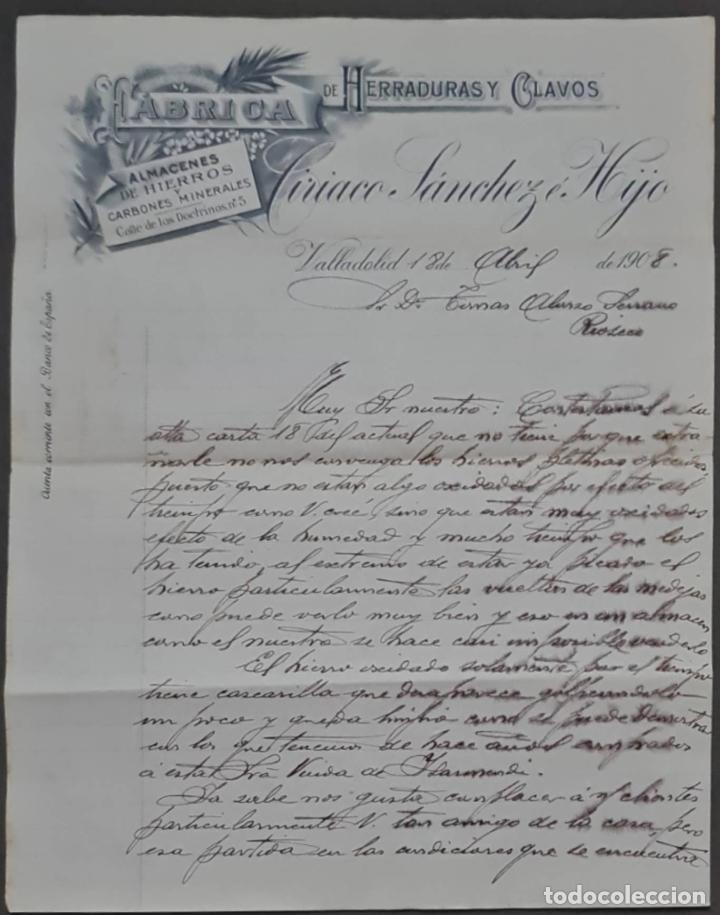 FÁBRICA DE HERRADURAS Y CLAVOS
ALMACENES
DE HIERROS
Y
CARBONES MINERALES
Calle de los Doctrinos, nº 5
Ciriaco Sánchez é Hijo
Valladolid 18 de Abril de 1908.
Sr Dn Tomas Alonso Serrano
Rioseco
Cuenta corriente con el Banco de España
Muy Sr nuestro: Contestamos á su
atta carta 18 del actual que no tiene por que extra-
ñarle no nos convenga los hierros pletinas ofrecidos
puesto que no estan algo oxidados por efecto del
tiempo como V. creé, sino que estan muy oxidados
efecto de la humedad y mucho tiempo que los
ha tenido, al extremo de estar ya picado el
hierro particularmente las vueltas de las madejas
como puede verlo muy bien y eso en un almacen
como el nuestro se hace casi imposible venderlo
El hierro oxidado solamente por el tiempo
tiene cascarilla que desaparece golpeandolo
un poco y queda limpio como se puede demostrar
con los que tenemos de hace años comprados
á esta Sra Viuda de
Ya sabe nos gusta complacer á ntros clientes
particularmente V. tan amigo de la casa, pero
esa partida en las condiciones que se encuentra
todocoleccion